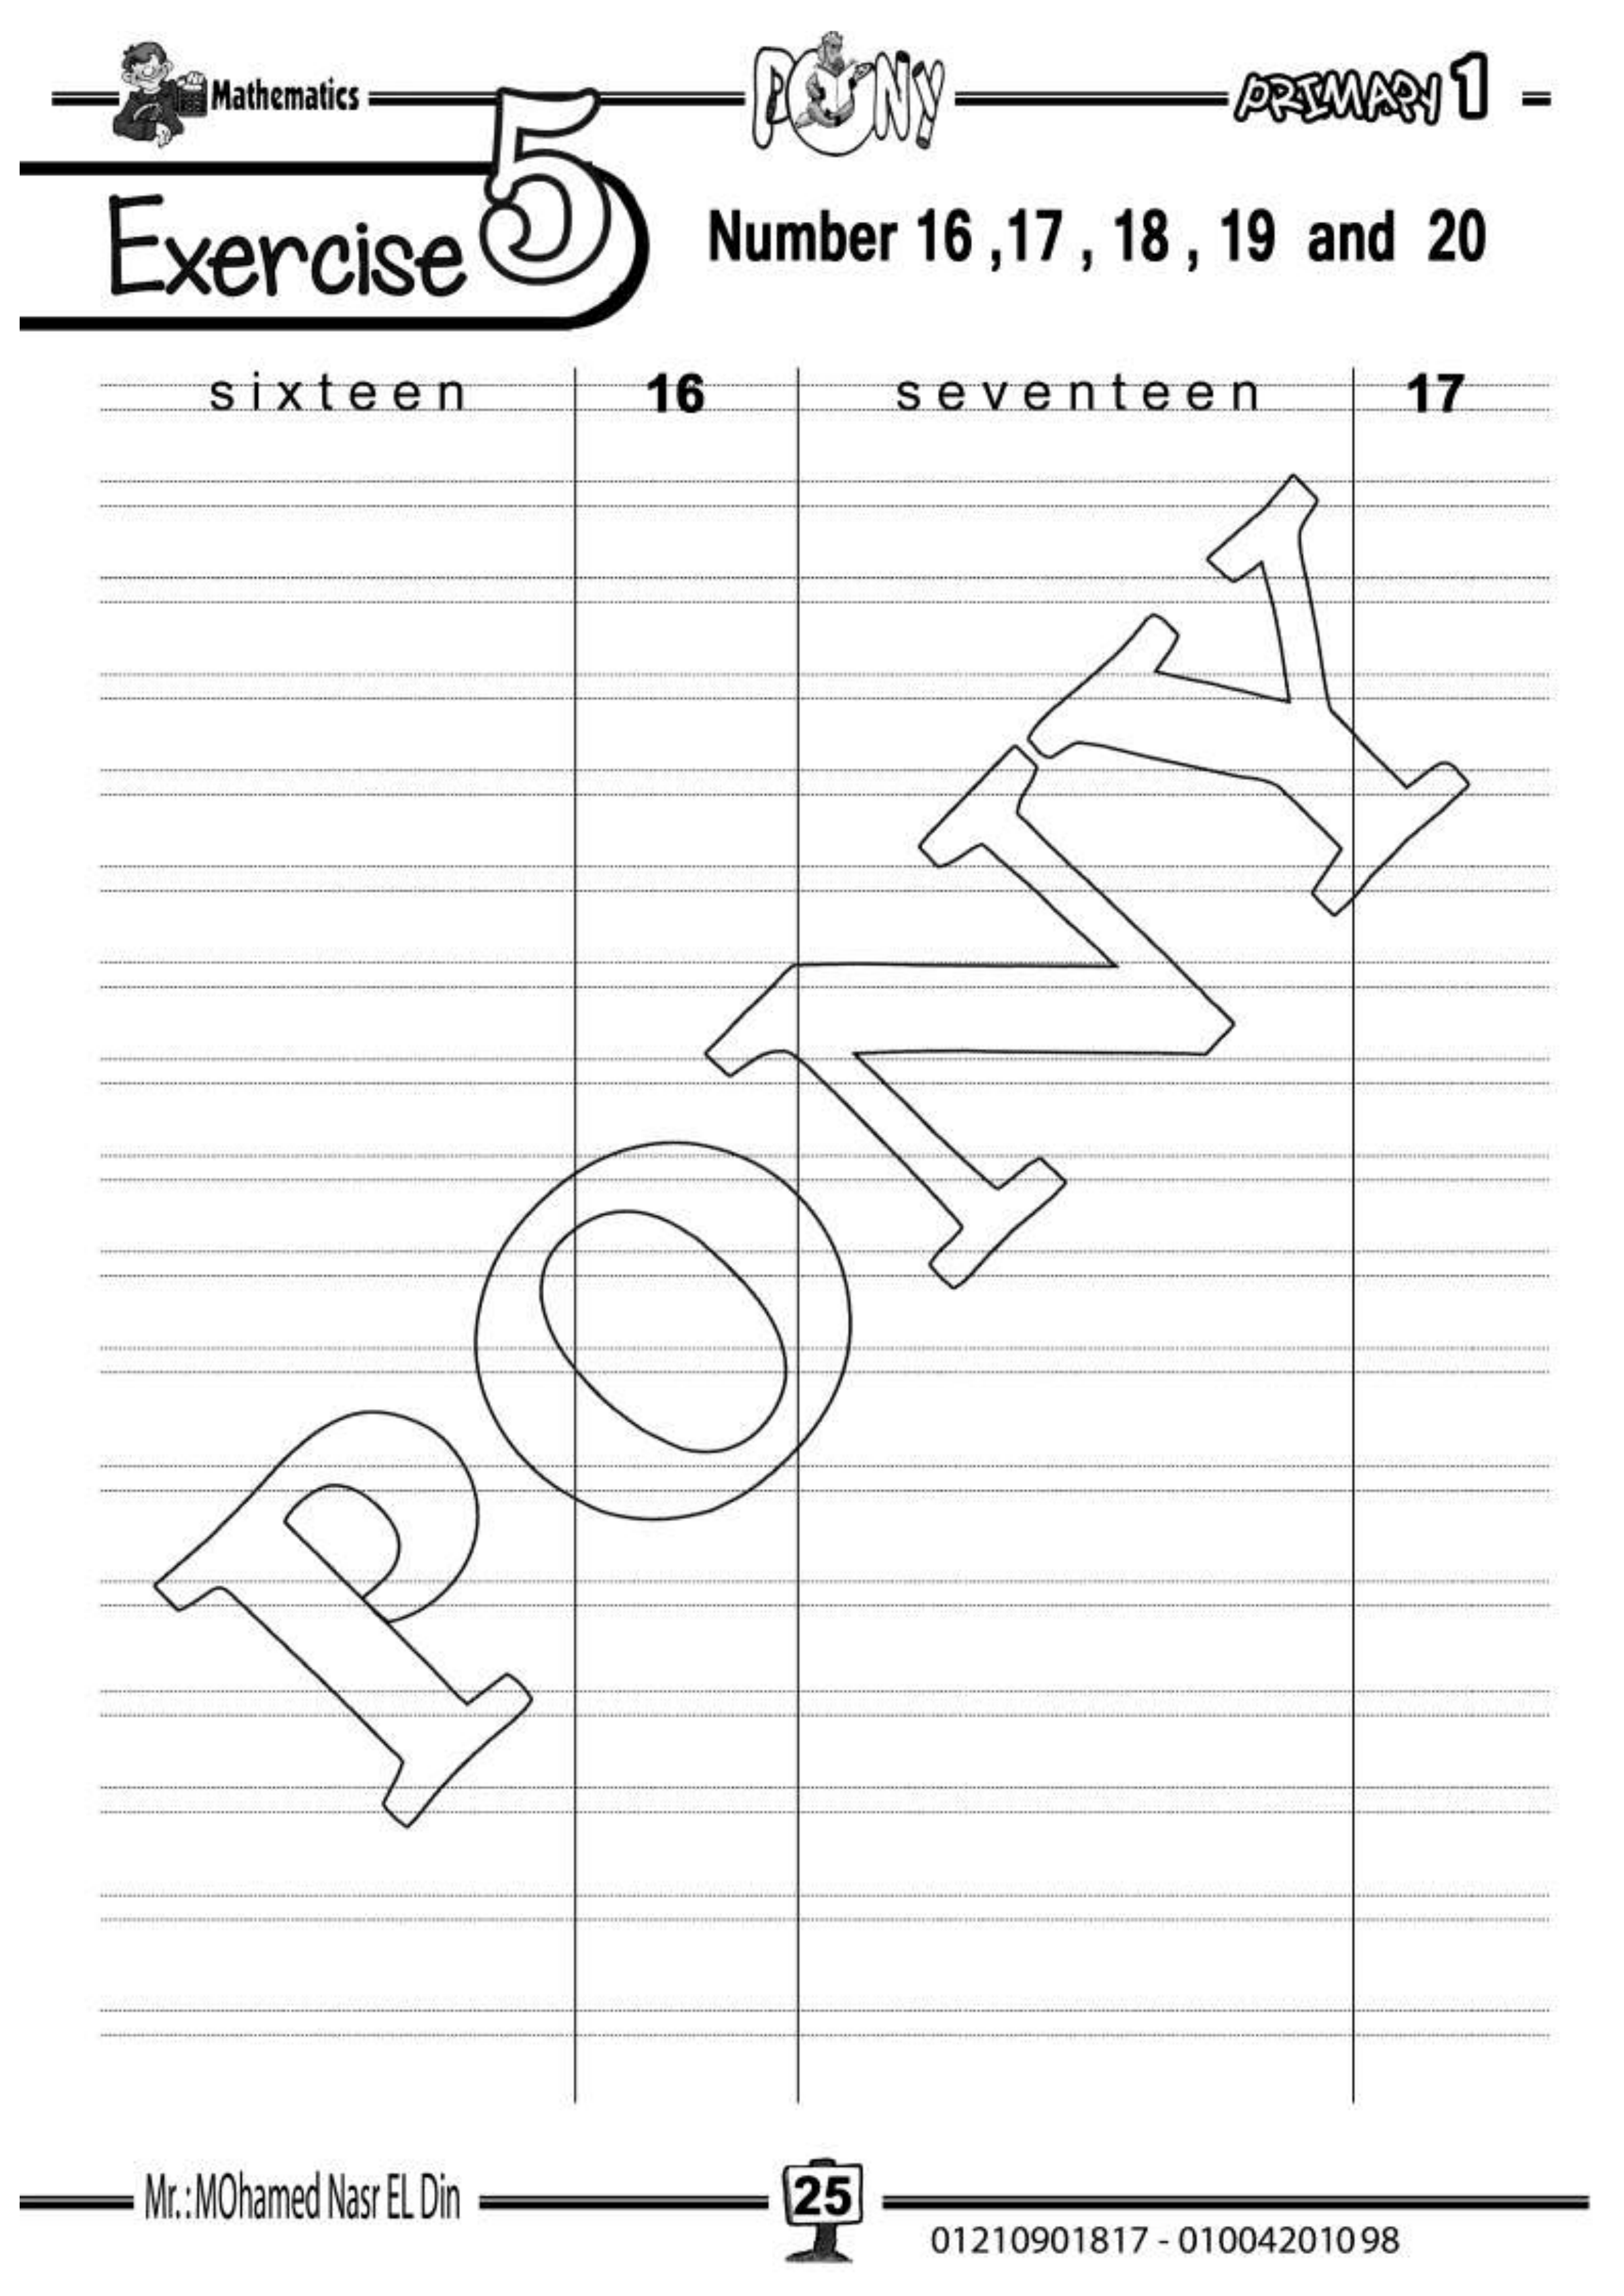 Mathematics PONY PRIMARY 1
Exercise 5 Number 16 ,17 , 18 , 19 and 20
sixteen 16 seventeen 17
PONY
Mr.:MOhamed Nasr EL Din 25
01210901817 - 01004201098